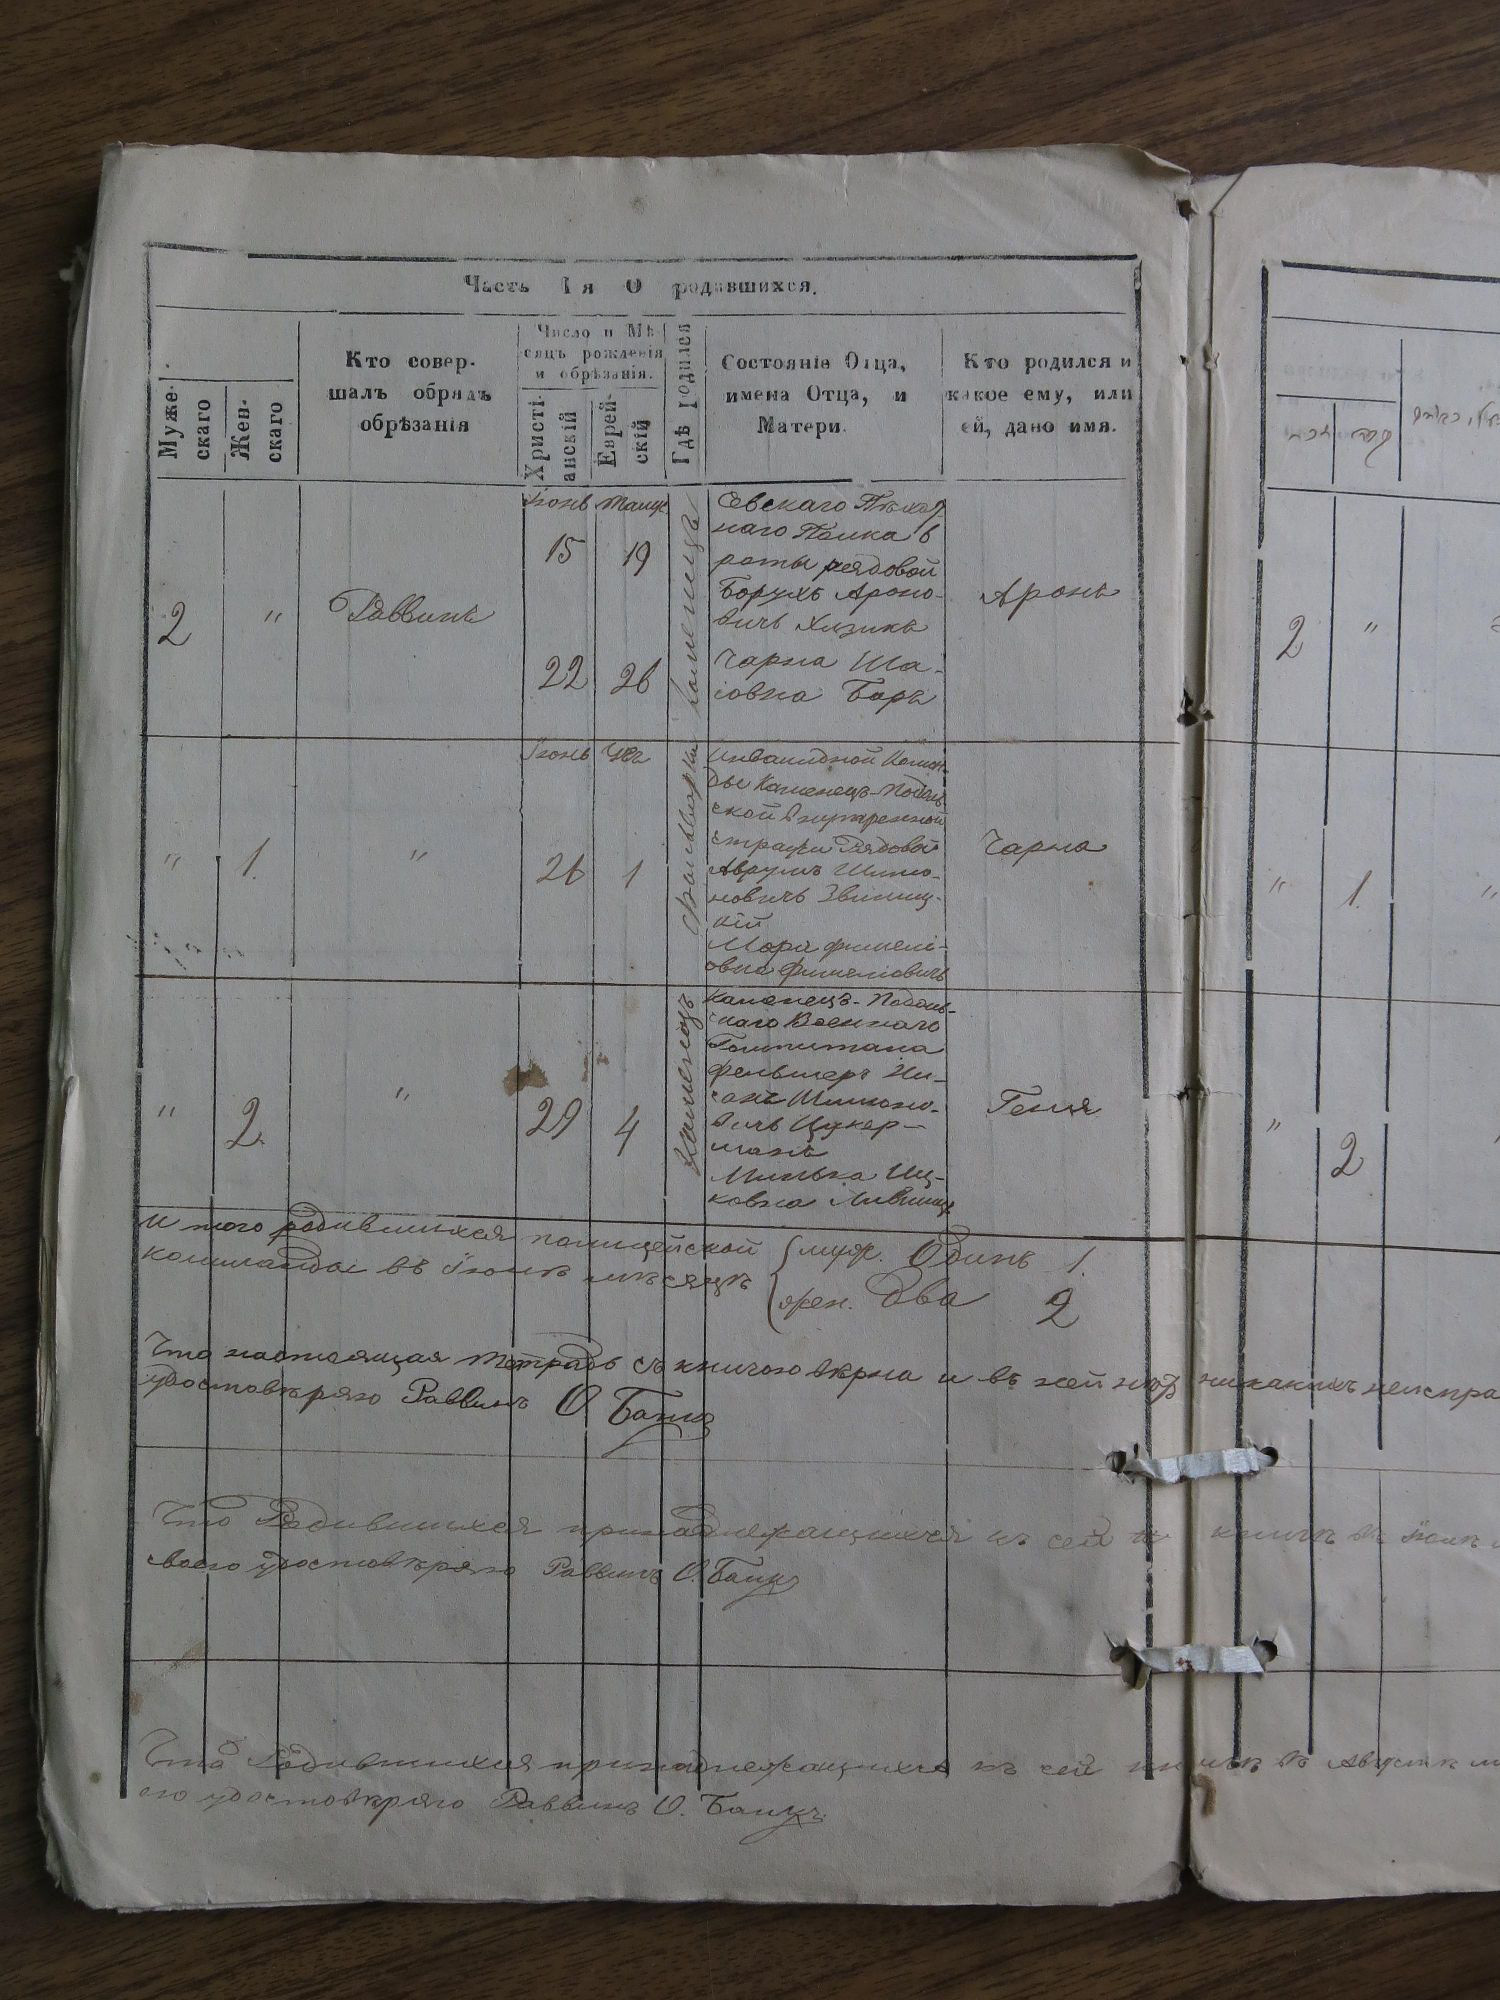 Часть Iя О родившихся.
Муже-
скаго
Жен-
скаго
Кто совер-
шалъ обрядъ
обрѣзанія
Число и Мѣ-
сяцъ рожденія
и обрѣзанія.
Христі-
анскій
Еврей-
скій
Гдѣ родился
Состояніе Отца,
имена Отца, и
Матери.
Кто родился и
какое ему, или
ей, дано имя.
2
"
Раввинъ
Іюнь
15
22
19
26
Севскаго Пѣхот
наго Полка 6
роты рядовой
Борухъ Ароно-
вичъ Хязикъ
Чарна Ша-
іовна
Аронъ
2
"
"
1.
"
Іюнь
26
1
Инвалидной Коман-
ды Каменецъ-Подоль
ской внутренной
стражи Рядовой
Аврумъ Шимо-
новичъ Звиниц-
кій
Чарна
"
1.
"
"
2.
"
29
4
Каменецъ
Каменецъ-Подоль-
скаго Военнаго
Гошпиталя
фельшеръ Ни-
санъ Шимоно-
вичъ Цукер-
манъ
Минька Иц-
ковна
Геня
"
2
И того родившихся полицейской
команды въ Іюнѣ мѣсяцѣ
муж. Одинъ 1.
жен. Два 2
Что настоящая тетрадь съ книгою вѣрна и въ ней нѣтъ никакихъ неиспра
удостовѣряю Раввинъ О
Что Родившихся принадлежащихся къ сей книгѣ въ
удостовѣряю Раввинъ О.
Что Родившихся принадлежащихся къ сей книгѣ въ Августѣ
его удостовѣряю Раввинъ О.